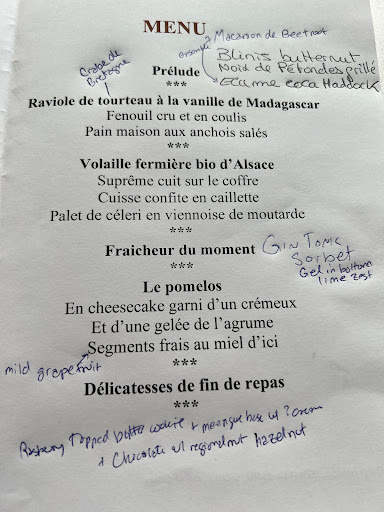 MENU
ensemble Macaron de Beetroot
Crabe de Bretagne
Blinis butternut
Prélude
Noix de Pétoncles grillé
***
Ecume coca Haddock
Raviole de tourteau à la vanille de Madagascar
Fenouil cru et en coulis
Pain maison aux anchois salés
***
Volaille fermière bio d'Alsace
Suprême cuit sur le coffre
Cuisse confite en caillette
Palet de céleri en viennoise de moutarde
***
Fraicheur du moment
GIN TONIC
Sorbet
Gel in bottom
lime zest
***
Le pomelos
En cheesecake garni d'un crémeux
Et d'une gelée de l'agrume
Segments frais au miel d'ici
mild grapefruit
***
Délicatesses de fin de repas
***
Raspberry Topped butter cookie + meringue base w/ ? cream
+ Chocolate w/ regional nut hazelnut